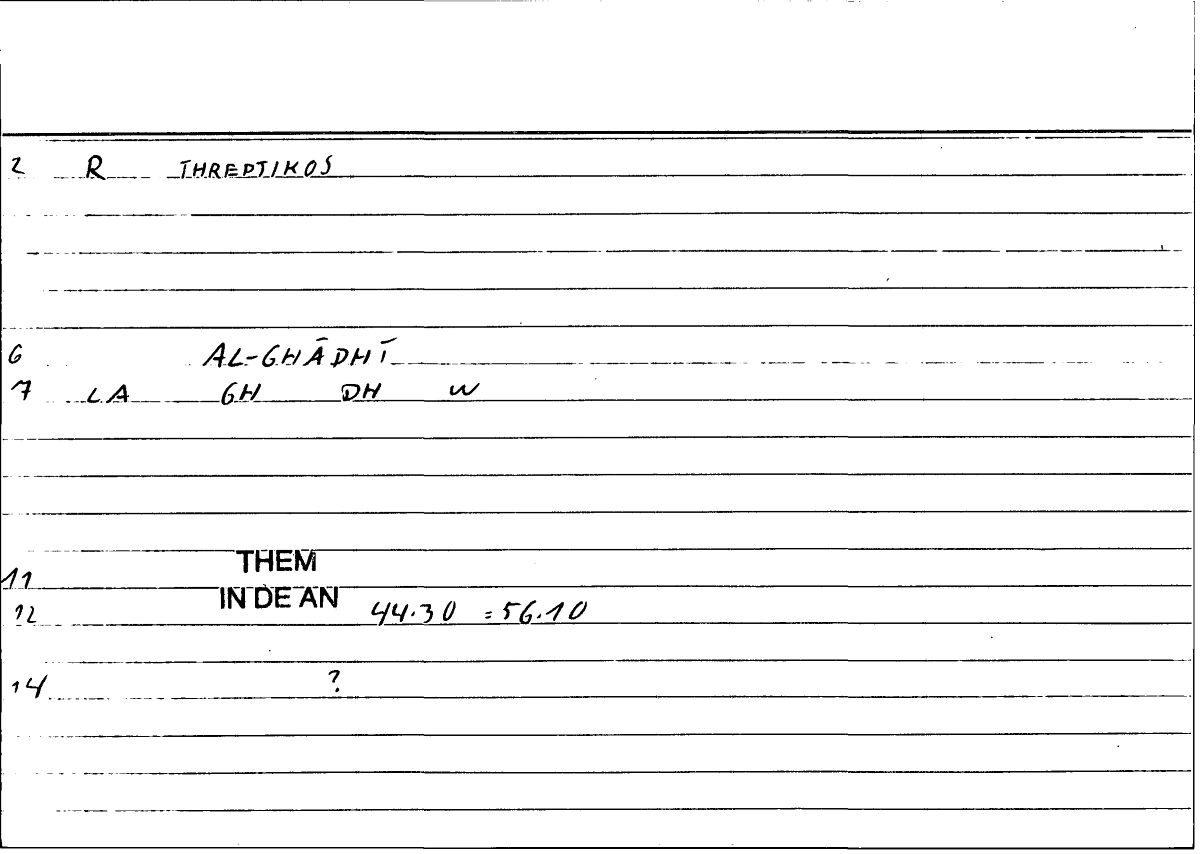 2 R THREPTIKOS
6 AL-GHĀDHĪ
7 LA GH DH W
THEM
11
IN DE AN
12 44.30 =56.10
14 ?